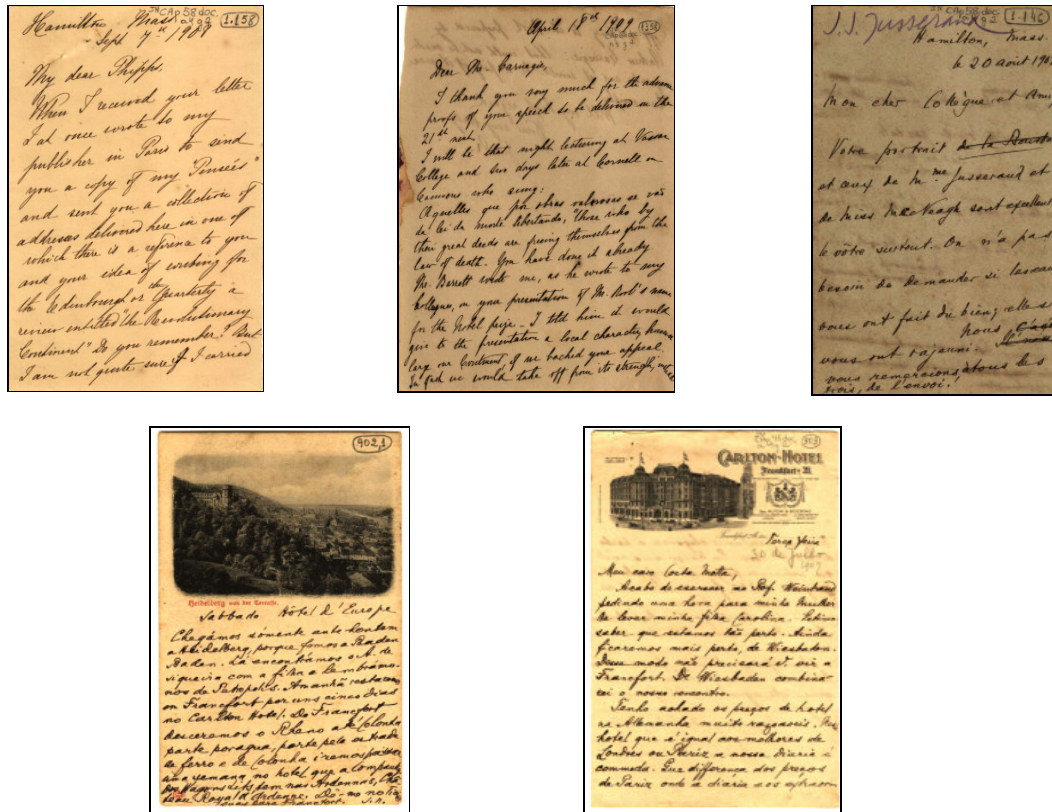 JN CAp 58 doc.
1.158
Hamilton, Mass.
Sept 7th 1908
My dear Phipps,
When I received your letter
I at once wrote to my
publisher in Paris to send
you a copy of my "Pensées"
and sent you a collection of
addresses delivered here in one of
which there is a reference to you
and your idea of writing for
the Edinburgh or the Quarterly a
review entitled "the Revolutionary
Continent" Do you remember? But
I am not quite sure if I carried
April 18th 1909
Dear Mr. Carnegie,
I thank you very much for the advance
proofs of your speech to be delivered on the
21st next.
I will be that night lecturing at Vassar
College and two days later at Cornell on
Camoens who sung:
Aquelles que por obras valerosas se vão
da lei da morte libertando, "those who by
their great deeds are freeing themselves from the
law of death. You have done it already
Mr. Barrett wrote me, as he wrote to my
Colleagues, on your presentation of Mr. Root's name
for the Nobel prize. I told him it would
give to the presentation a local character, however
large our Continent, if we backed your appeal.
In fact we would take off from its strength,
J. J. Jusserand
1.146
Hamilton, Mass.
le 20 août 190
Mon cher Collègue et Ami,
Votre portrait de la
et ceux de Mme Jusserand et
de Miss MacVeagh sont excellent
le vôtre surtout. On n'a pas
besoin de demander si les eaux
vous ont fait du bien; elles
vous ont rajeuni. Nous
vous remercions, tous les
trois, de l'envoi.
902,1
Heidelberg von der Terrasse.
Sabbado Hôtel d'Europe
Chegámos sómente ante-hontem
a Heidelberg, porque fomos a Baden
Baden. Lá encontrámos o A. de
Siqueira com a filha e lembrámo-
nos de Petropolis. Amanhã estaremos
em Francfort por uns cinco dias
no Carlton Hotel. De Francfort
desceremos o Rheno até Colonha
parte por agua, parte pela estrada
de ferro e de Colonha iremos passar
uma semana no hotel que a Compa
dos Wagons Lits tem nas Ardennas, Châ
teau Royal d'Ardenne. Dê-nos no
CARLTON-HOTEL
Frankfurt a. M.
Terça feira
30 de Julho
1907
Meu caro Costa Motta,
Acabo de escrever ao Prof. Weintraud
pedindo uma hora para minha mulher
lhe levar minha filha Carolina. Estimo
saber que estamos tão perto. Ainda
ficaremos mais perto, de Wiesbaden.
Desse modo não precisará V. vir a
Francfort. De Wiesbaden combina-
rei o nosso encontro.
Tenho achado os preços de hotel
na Allemanha muito razoaveis. Neste
hotel que é igual aos melhores de
Londres ou Pariz a nossa diaria é
commoda. Que differença dos preços
de Pariz onde a diaria e os extras